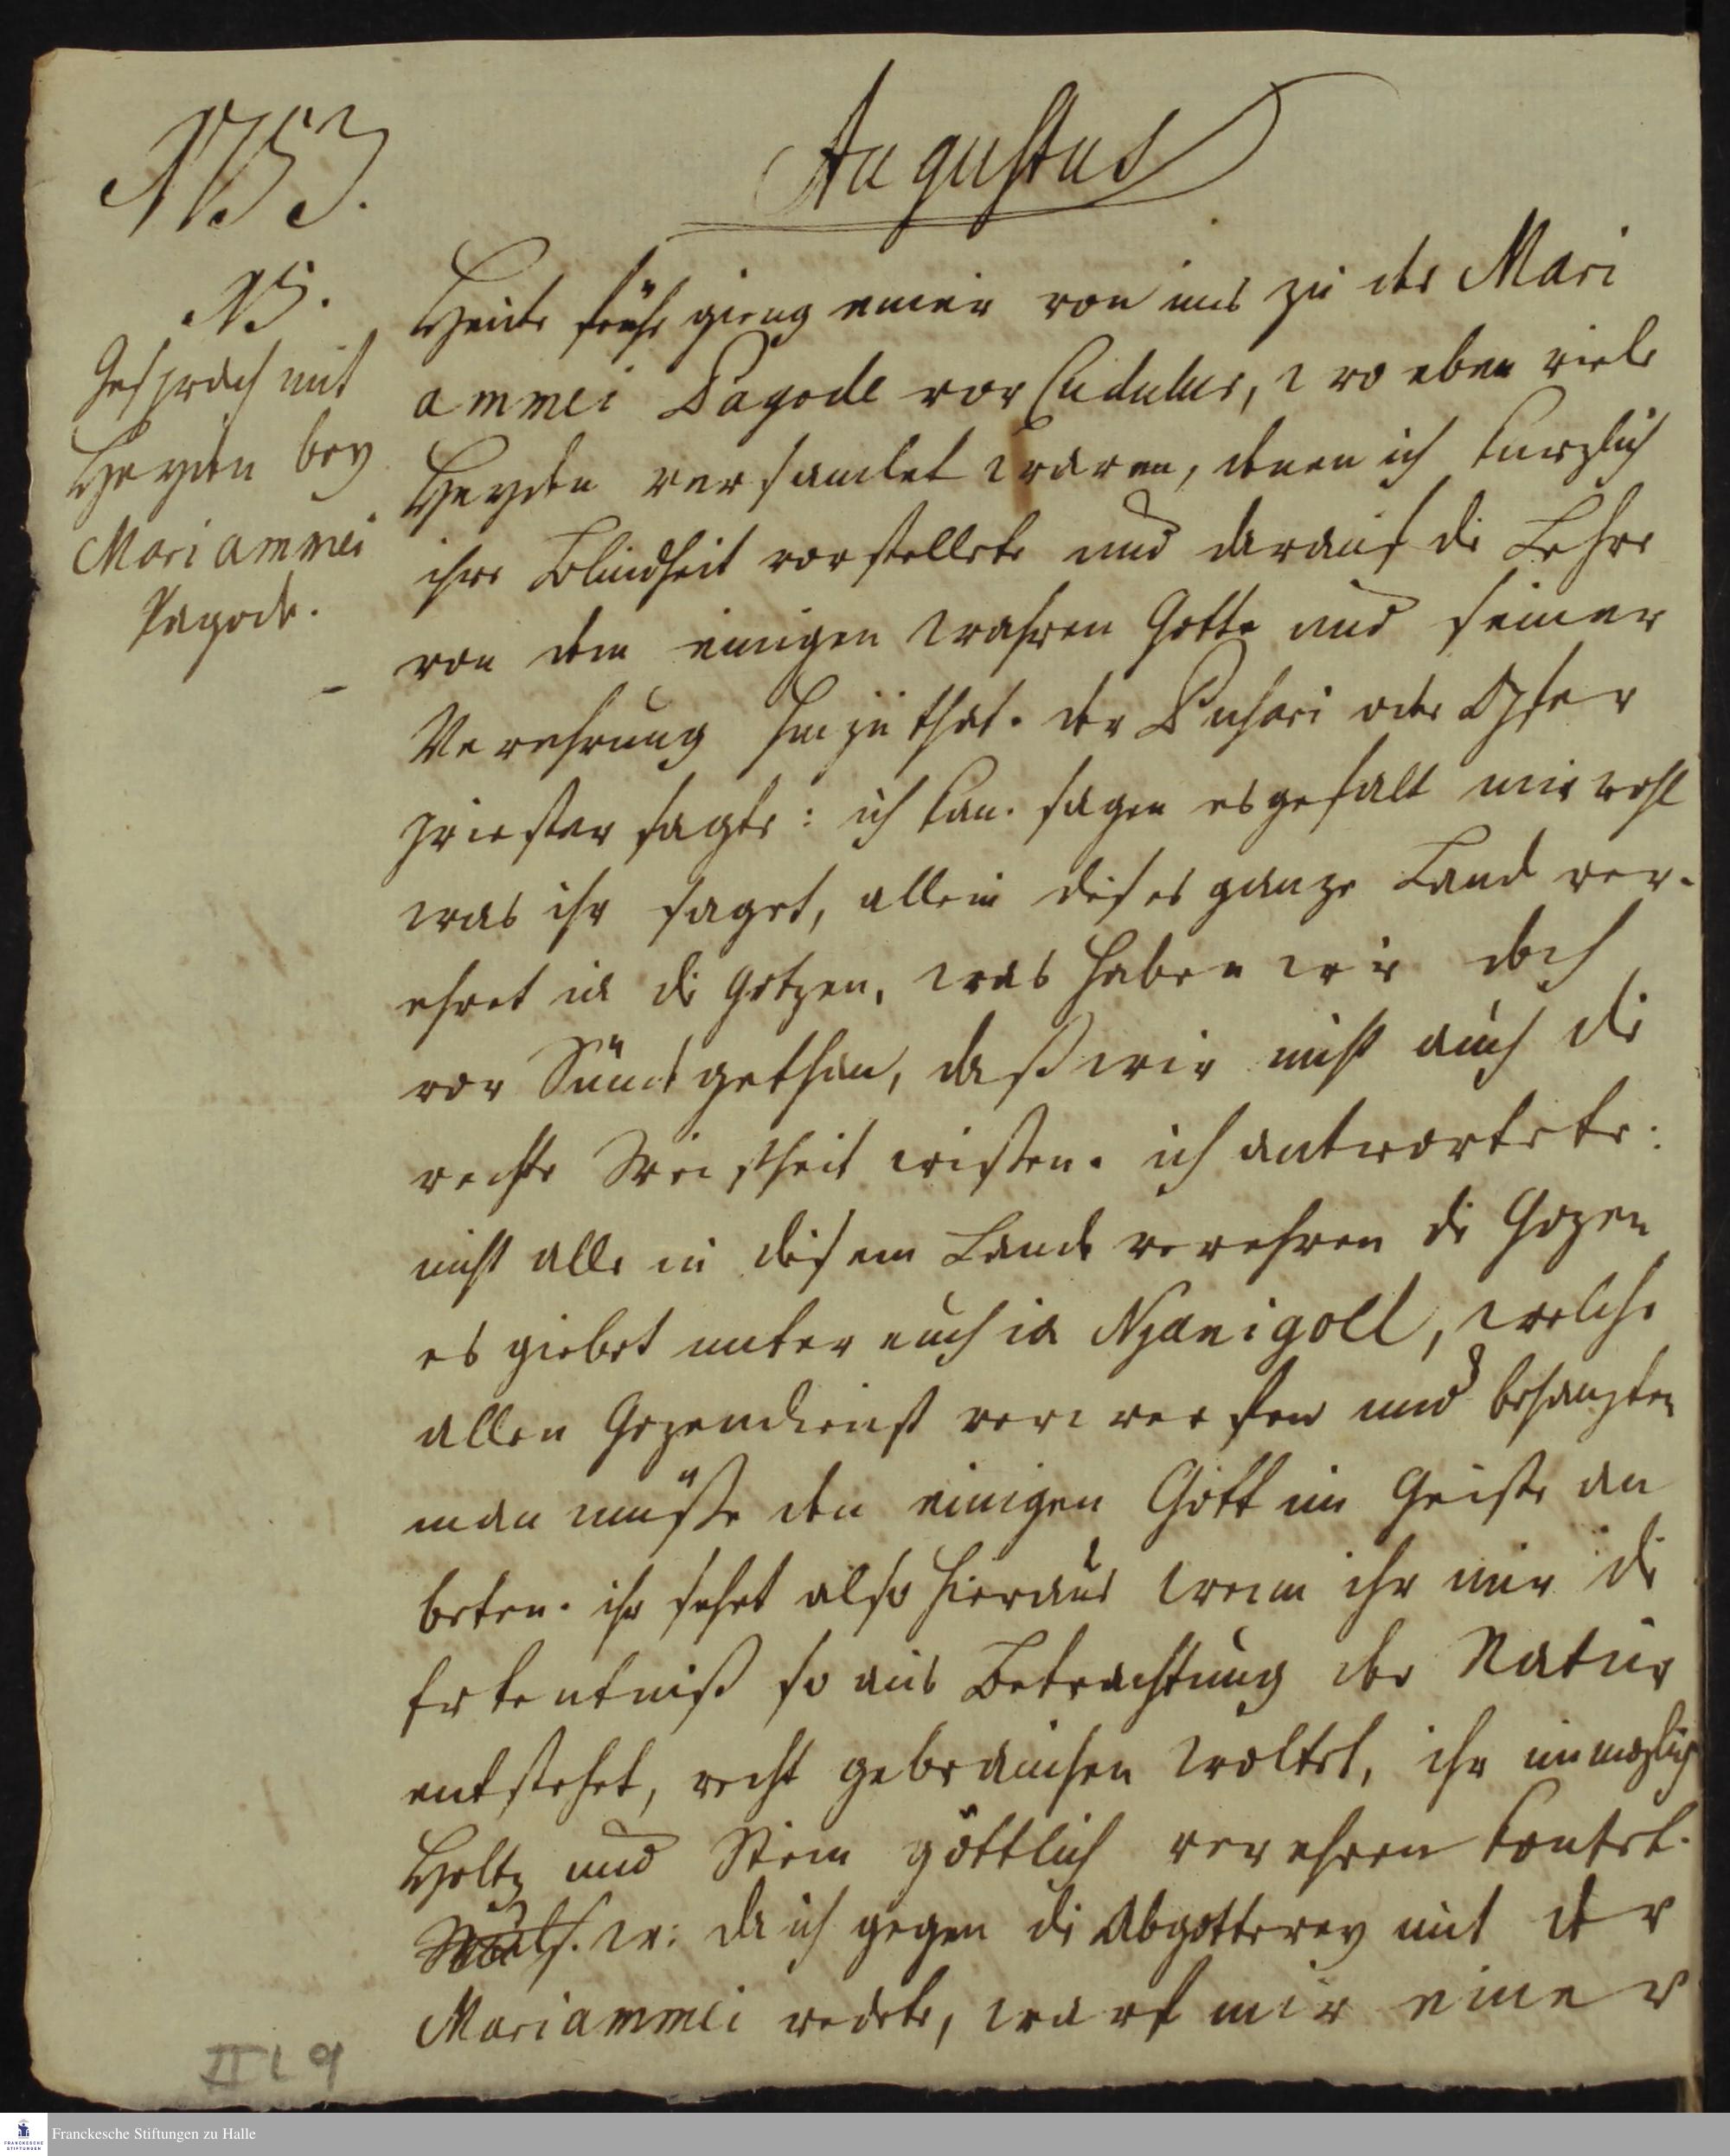 1753.
Augustus
15.
Gespräch mit
Heyden bey
Mariammei
Pagode.
Heute frühe gieng einer von uns zu der Mari
ammei Pagode vor Cudulur, wo eben viele
Heyden versamlet waren, denen ich kurzlich
ihre Blindheit vorstellete und darauf die Lehre
von dem einigen wahren Gotte und seiner
Verehrung hinzu that. der Puhari oder Opfer
priester sagte: ich kan sagen es gefalt mir wohl
was ihr saget, allein dises ganze Land ver-
ehret ia die Gotzen, was haben wir doch
vor Sünde gethan, daß wir nicht auch die
rechte Weißheit wißen. ich antwortete:
nicht alle in disem Lande verehren die Gozen
es giebet unter euch ia Njanigoll, welche
allen Gozendienst verwerfen und behaupten
man müße den einigen Gott im Geiste an
beten. ihr sehet also hieraus wenn ihr nur die
Erkentniß so aus Betrachtung der Natur
entstehet, recht gebrauchen woltet, ihr unmoglich
Holtz und Stein göttlich verehren kontet.
da ich gegen die Abgotterey mit der
Mariammei redete, warf mir einer
II L 9
Franckesche Stiftungen zu Halle